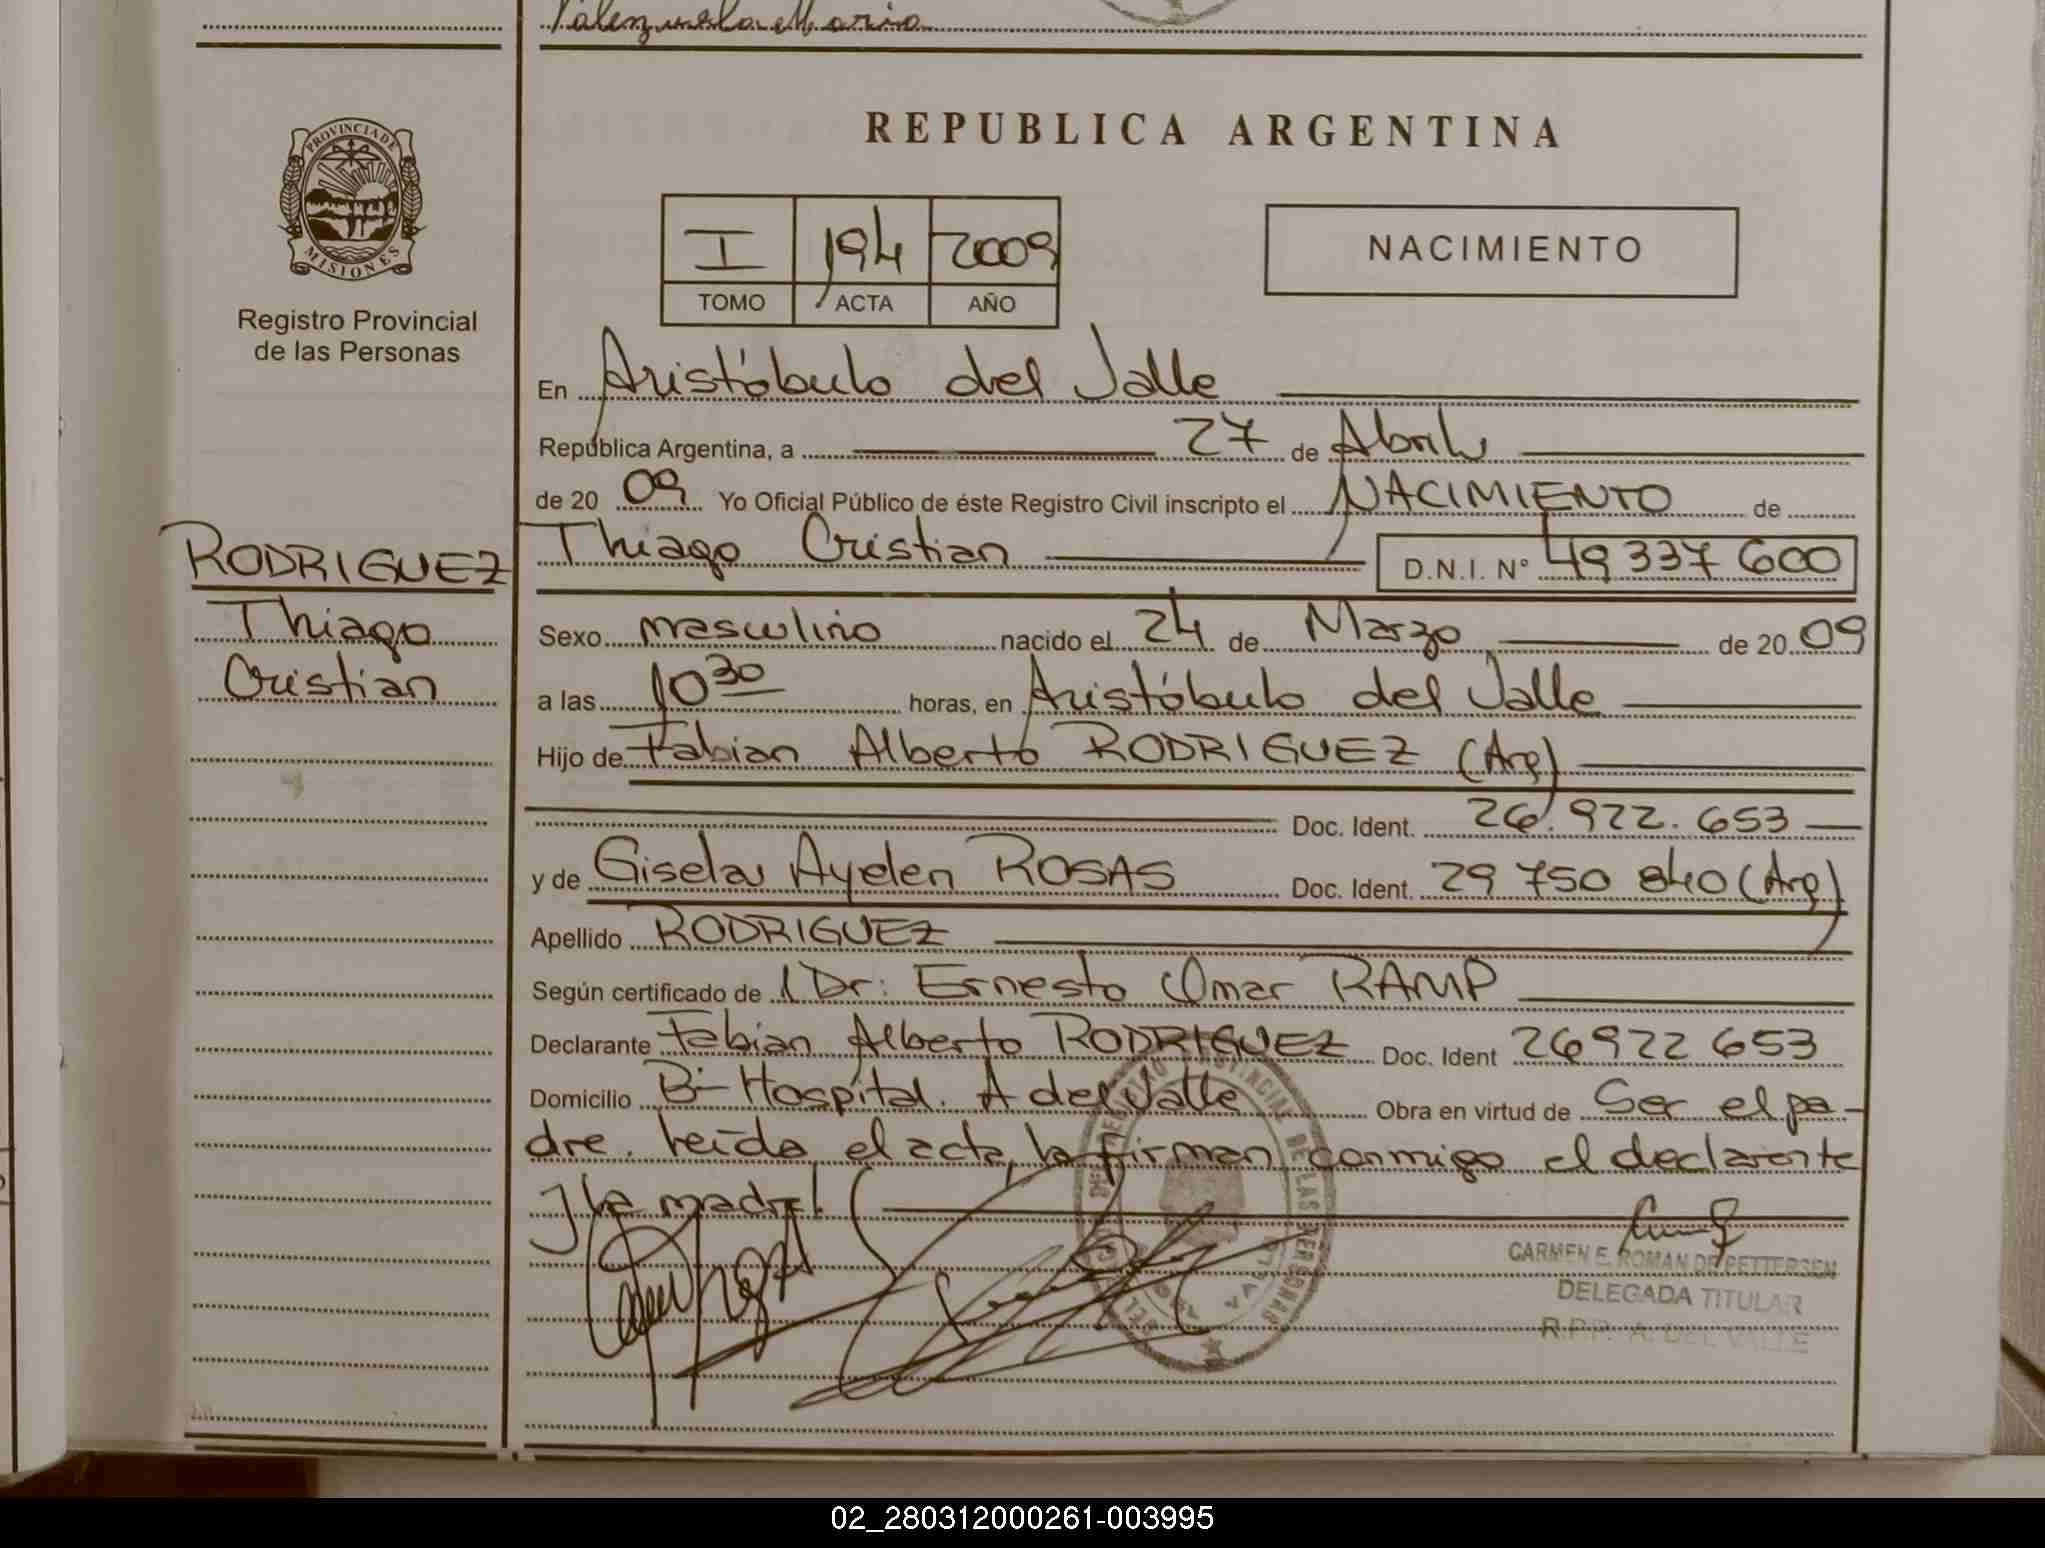 Valenzuela Maria
PROVINCIA DE
MISIONES
Registro Provincial
de las Personas
RODRIGUEZ
Thiago
Cristian
REPUBLICA ARGENTINA
I 194 2009
TOMO ACTA AÑO
NACIMIENTO
En Aristóbulo del Valle
República Argentina, a 27 de Abril
de 20 09 Yo Oficial Público de éste Registro Civil inscripto el NACIMIENTO de
Thiago Cristian D.N.I. N° 49 337 600
Sexo masculino nacido el 24 de Marzo de 20 09
a las 10 30 horas, en Aristóbulo del Valle
Hijo de Fabian Alberto RODRIGUEZ (Arg)
Doc. Ident. 26.922.653
y de Gisela Ayelen ROSAS Doc. Ident. 29 750 840 (Arg)
Apellido RODRIGUEZ
Según certificado de Dr: Ernesto Omar RAMP
Declarante Fabian Alberto RODRIGUEZ Doc. Ident 26922 653
Domicilio B- Hospital. A del Valle Obra en virtud de Ser el pa-
dre. Leída el acta, la firman conmigo el declarante
y la madre!
CARMEN E. ROMAN DE PETTERSEN
DELEGADA TITULAR
R.P.P. A. DEL VALLE
02_280312000261-003995